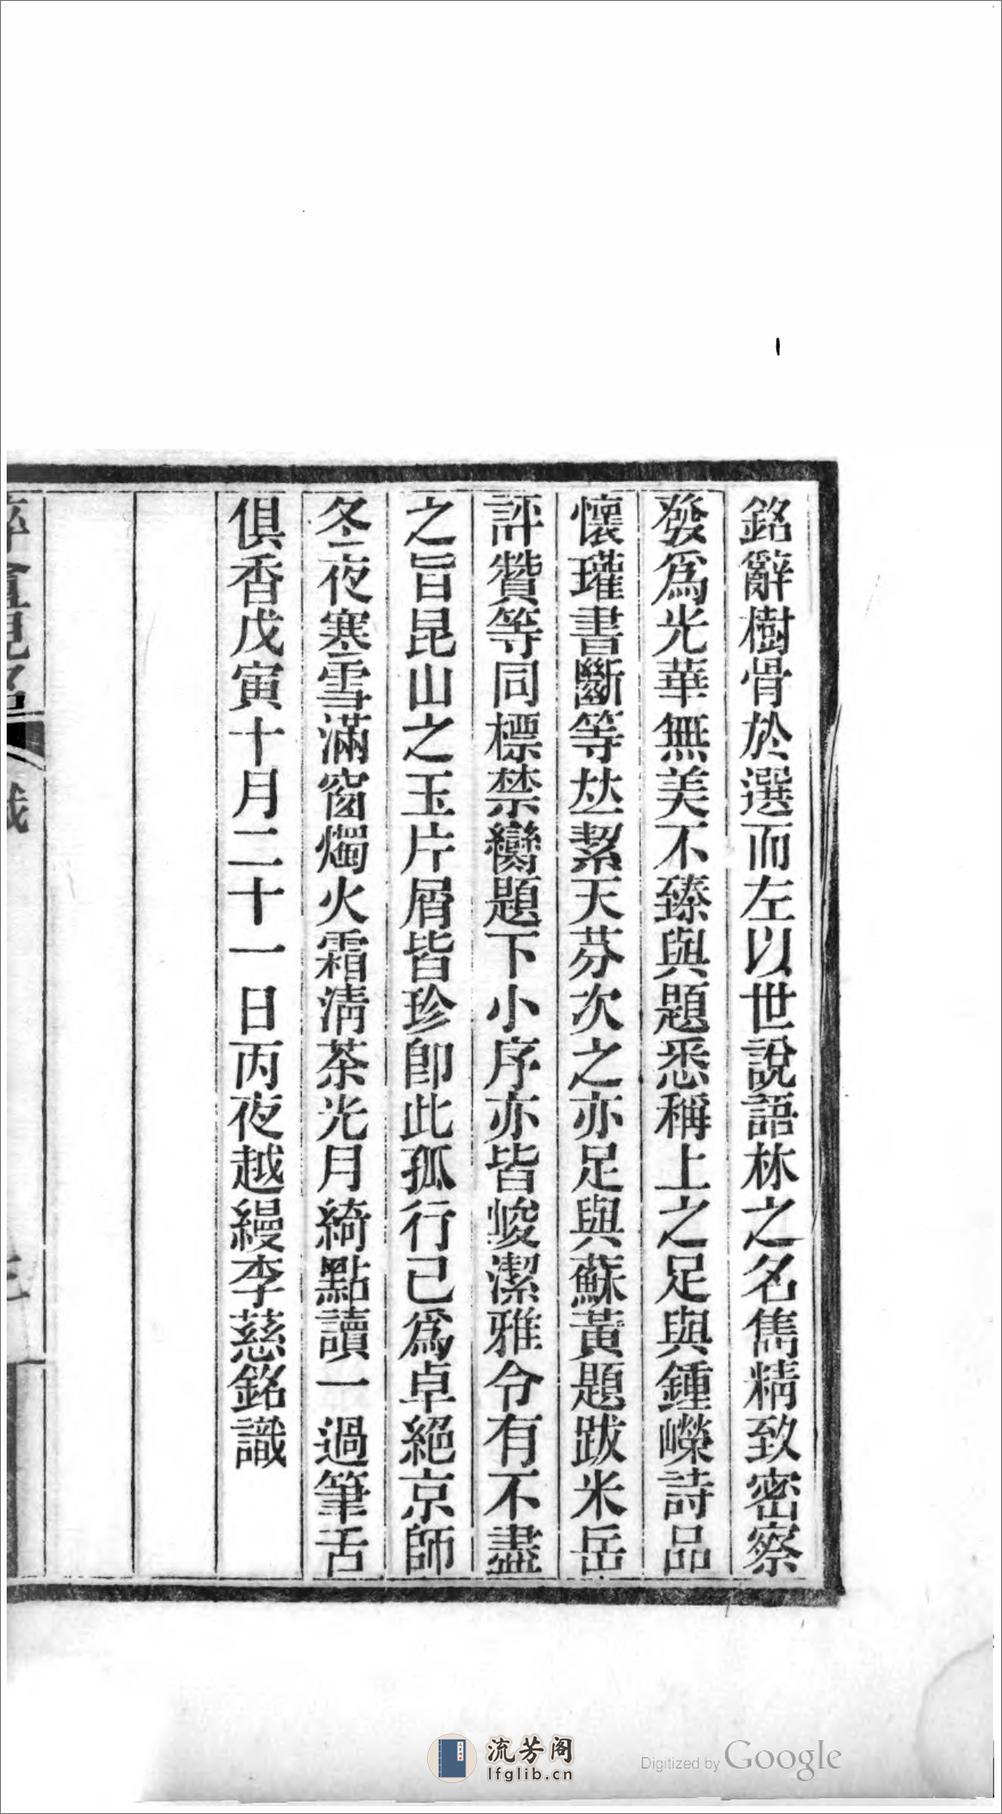 銘辭樹骨於選而左以世說語林之名雋精致密察
發爲光華無美不臻與題悉稱上之足與鍾嶸詩品
懷瓘書斷等㚐絜天芬次之亦足與蘇黃題跋米岳
評贊等同標禁臠題下小序亦皆峻潔雅令有不盡
之旨昆山之玉片屑皆珍卽此孤行已爲卓絕京師
冬夜寒雪滿窗燭火霜淸茶光月綺點讀一過筆舌
俱香戊寅十月二十一日丙夜越縵李慈銘識
流芳阁
lfglib.cn
Digitized by Google